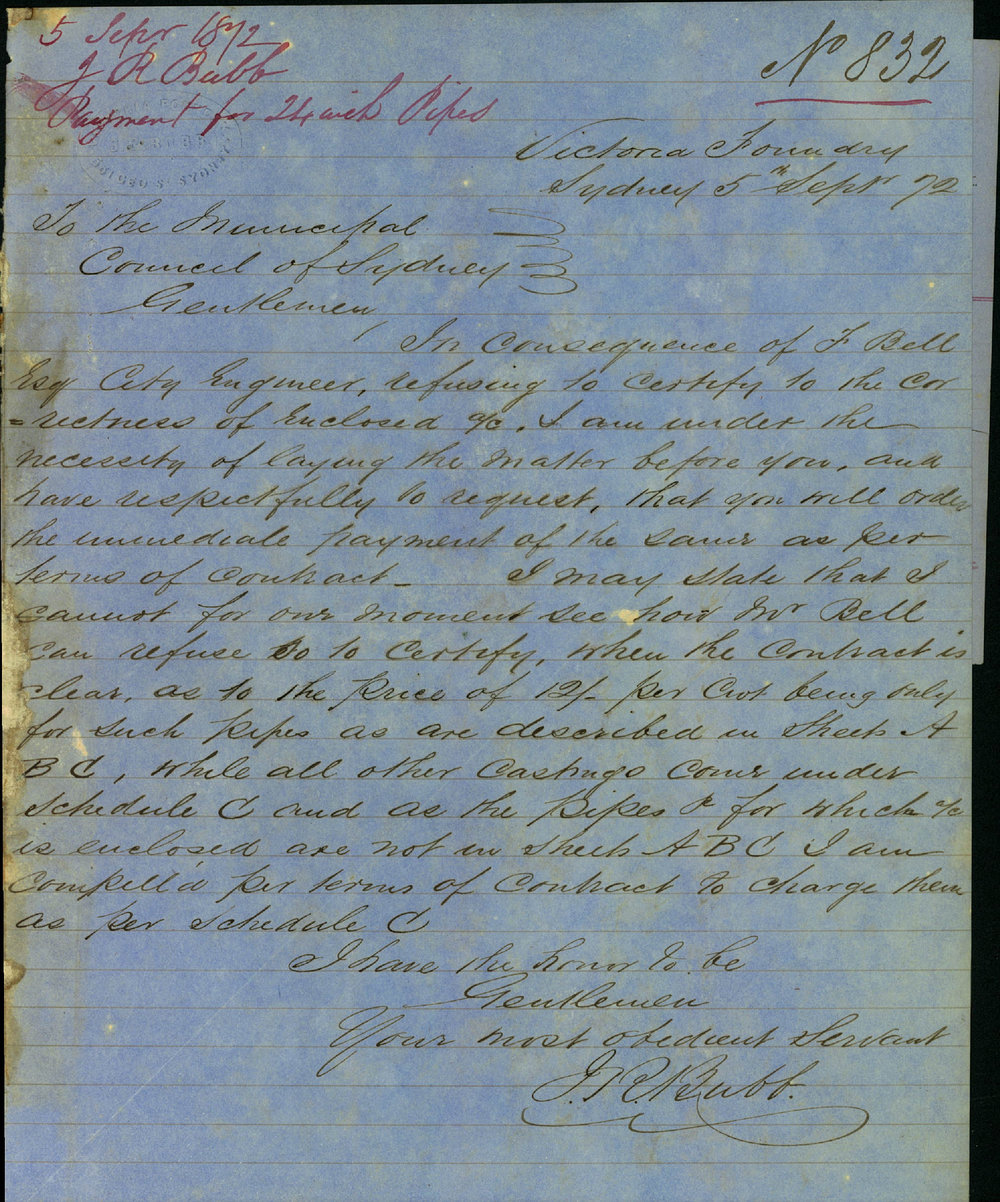 5 Sepr 1872
J R Bubb
Payment for 24 inch Pipes
No 832
Victoria Foundry
Sydney 5th Sept 72
To the Municipal
Council of Sydney
Gentlemen,
In Consequence of F Bell
Esq City Engineer, refusing to certify to the cor
=rectness of Enclosed a/c, I am under the
necessity of laying the matter before you, and
have respectfully to request, that you will order
the immediate payment of the same as per
terms of Contract_ I may state that I
cannot for one moment see how Mr Bell
can refuse so to Certify, when the Contract is
clear, as to the price of 12/- per Cwt being only
for such pipes as are described in Sheets A
B C, while all other Castings come under
Schedule C and as the pipes for which a/c
is enclosed are not in Sheets A B C I am
Compell'd per terms of Contract to charge them
as per Schedule C
I have the honor to be
Gentlemen
Your most obedient Servant
J. R. Bubb.